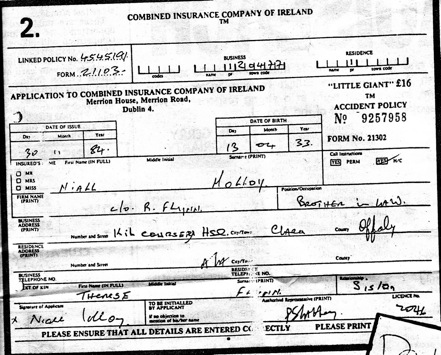 COMBINED INSURANCE COMPANY OF IRELAND
TM
2.
LINKED POLICY No. 4545191
FORM 21103
codes
BUSINESS
name pr town code
RESIDENCE
name pr town code
APPLICATION TO COMBINED INSURANCE COMPANY OF IRELAND
Merrion House, Merrion Road,
Dublin 4.
"LITTLE GIANT" £16
TM
ACCIDENT POLICY
No 9257958
FORM No. 21302
DATE OF ISSUE
Day Month Year
30 11 84
DATE OF BIRTH
Day Month Year
13 04 33
Call Instructions
YES PERM YES N/C
INSURED'S First Name (IN FULL) Middle Initial Surname (PRINT)
MR
MRS
MISS
NIALL MOLLOY
FIRM NAME
(PRINT)
c/o R. FLYNN.
Position/Occupation
BROTHER IN LAW.
BUSINESS
ADDRESS
(PRINT)
KILCOURSEY HSE. CLARA Offaly
Number and Street City/Town County
RESIDENCE
ADDRESS
(PRINT)
Number and Street City/Town County
BUSINESS
TELEPHONE NO.
RESIDENCE
TELEPHONE NO.
First Name (IN FULL) Middle Initial (PRINT) Relationship
THERESE
Signature of Applicant
TO BE INITIALLED
BY APPLICANT
If no objection to
mention of his/her name
Authorised Representative (PRINT)
LICENCE No
2041
x Niall Molloy
PLEASE ENSURE THAT ALL DETAILS ARE ENTERED CORRECTLY PLEASE PRINT